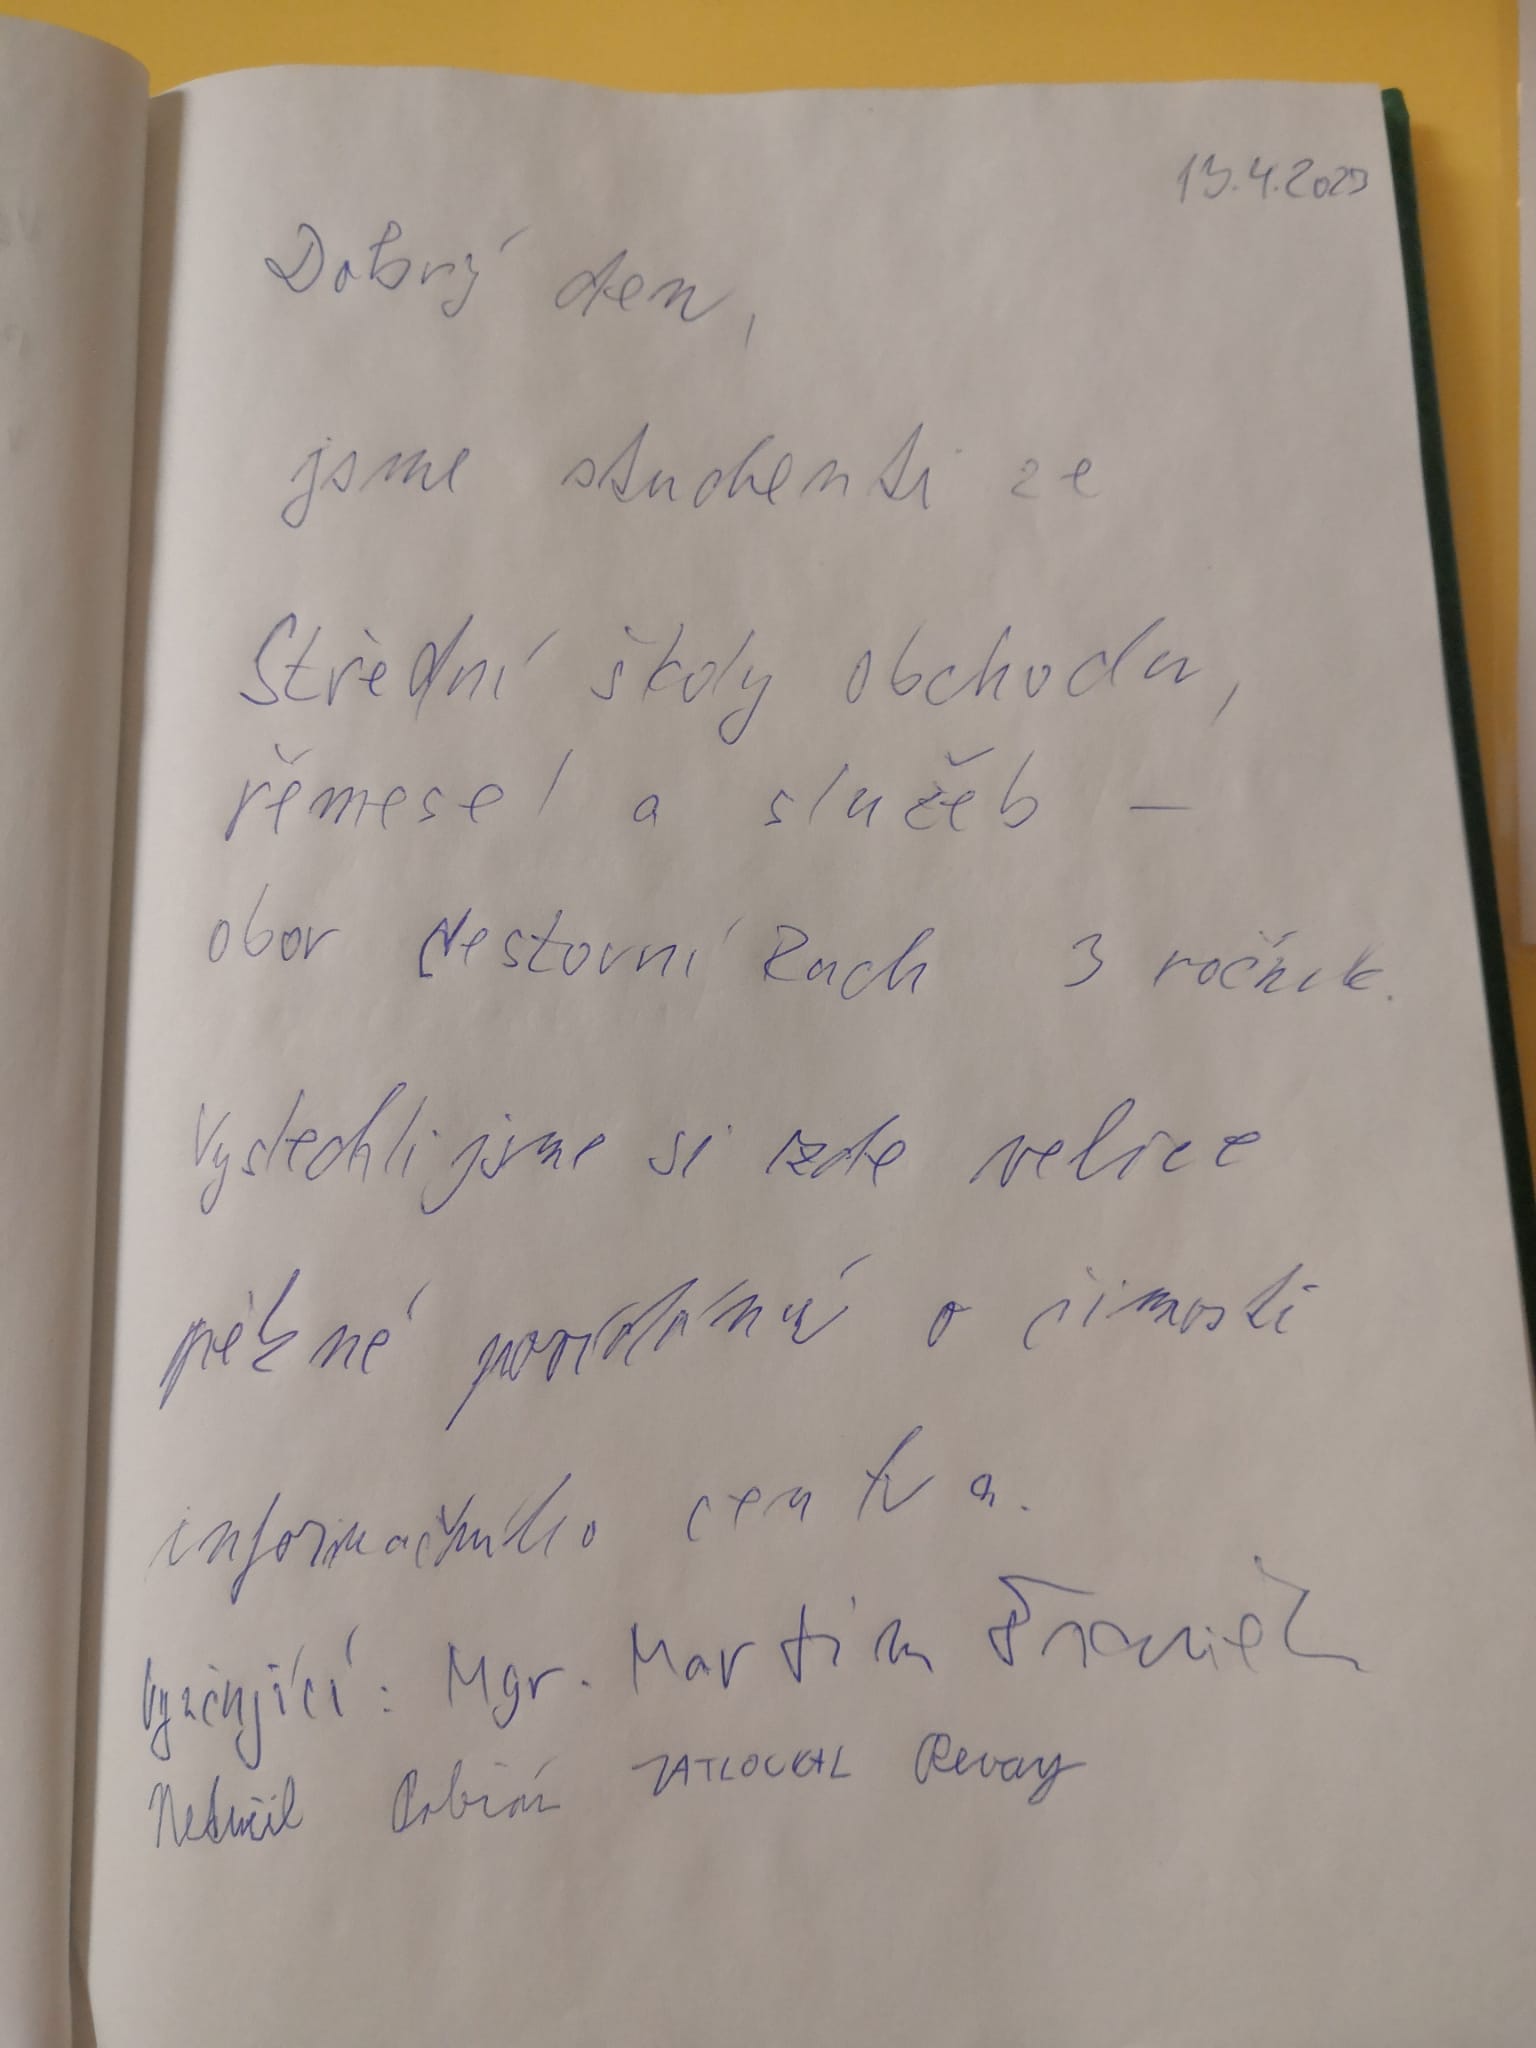 13.4.2023
Dobrý den,
jsme studenti ze
Střední školy obchodu,
řemesel a služeb –
obor cestovní ruch 3 ročník.
Vyslechli jsme si zde velice
pěkné povídání o činnosti
informačního centra.
Vyučující: Mgr. Martin
Nesušil ZATLOUKAL Revay